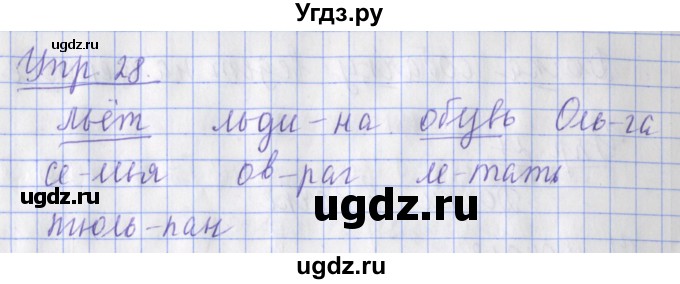 Угдз.ру
ugdz.ru ugdz.ru ugdz.ru
Упр 28.
льёт льди-на обувь Оль-га
се-мья ов-раг ле-тать
ugdz.ru ugdz.ru ugdz.ru
тюль-пан
ugdz.ru